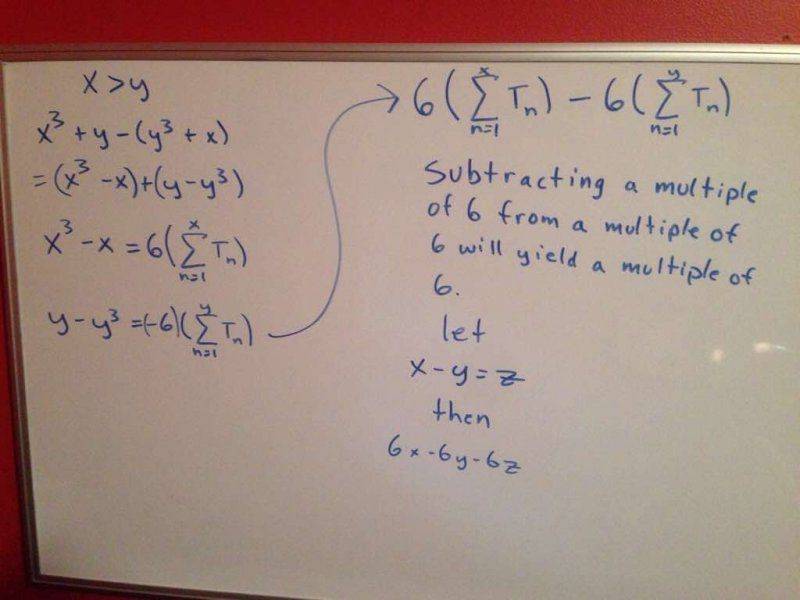 x > y
x³ + y - (y³ + x)
= (x³ - x) + (y - y³)
x³ - x = 6(∑ₙ₌₁ˣ Tₙ)
y - y³ = (-6)(∑ₙ₌₁ʸ Tₙ)
6(∑ₙ₌₁ˣ Tₙ) - 6(∑ₙ₌₁ʸ Tₙ)
Subtracting a multiple
of 6 from a multiple of
6 will yield a multiple of
6.
let
x - y = z
then
6x - 6y - 6z